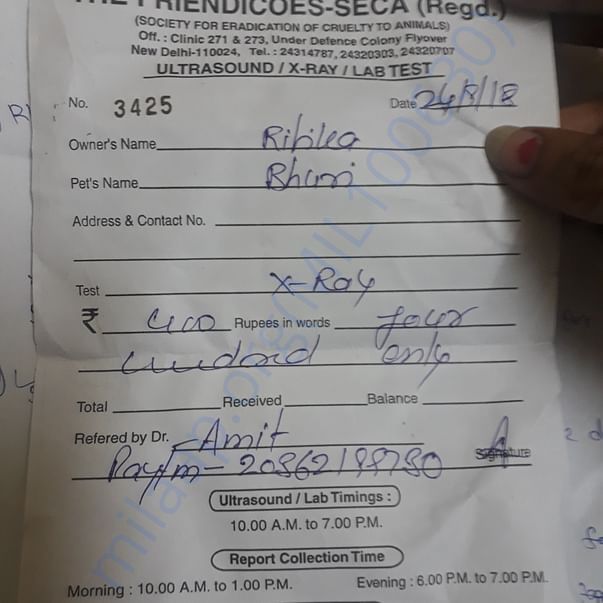 THE FRIENDICOES-SECA (Regd.)
(SOCIETY FOR ERADICATION OF CRUELTY TO ANIMALS)
Off. : Clinic 271 & 273, Under Defence Colony Flyover
New Delhi-110024, Tel. : 24314787, 24320303, 24320707
ULTRASOUND / X-RAY / LAB TEST
No. 3425 Date 24/8/18
Owner's Name
Pet's Name Bhuri
Address & Contact No.
Test X-Ray
₹ 400 Rupees in words four
hundred only
Total Received Balance
Refered by Dr. Amit
Paytm - Signature
Ultrasound / Lab Timings :
10.00 A.M. to 7.00 P.M.
Report Collection Time
Morning : 10.00 A.M. to 1.00 P.M. Evening : 6.00 P.M. to 7.00 P.M.